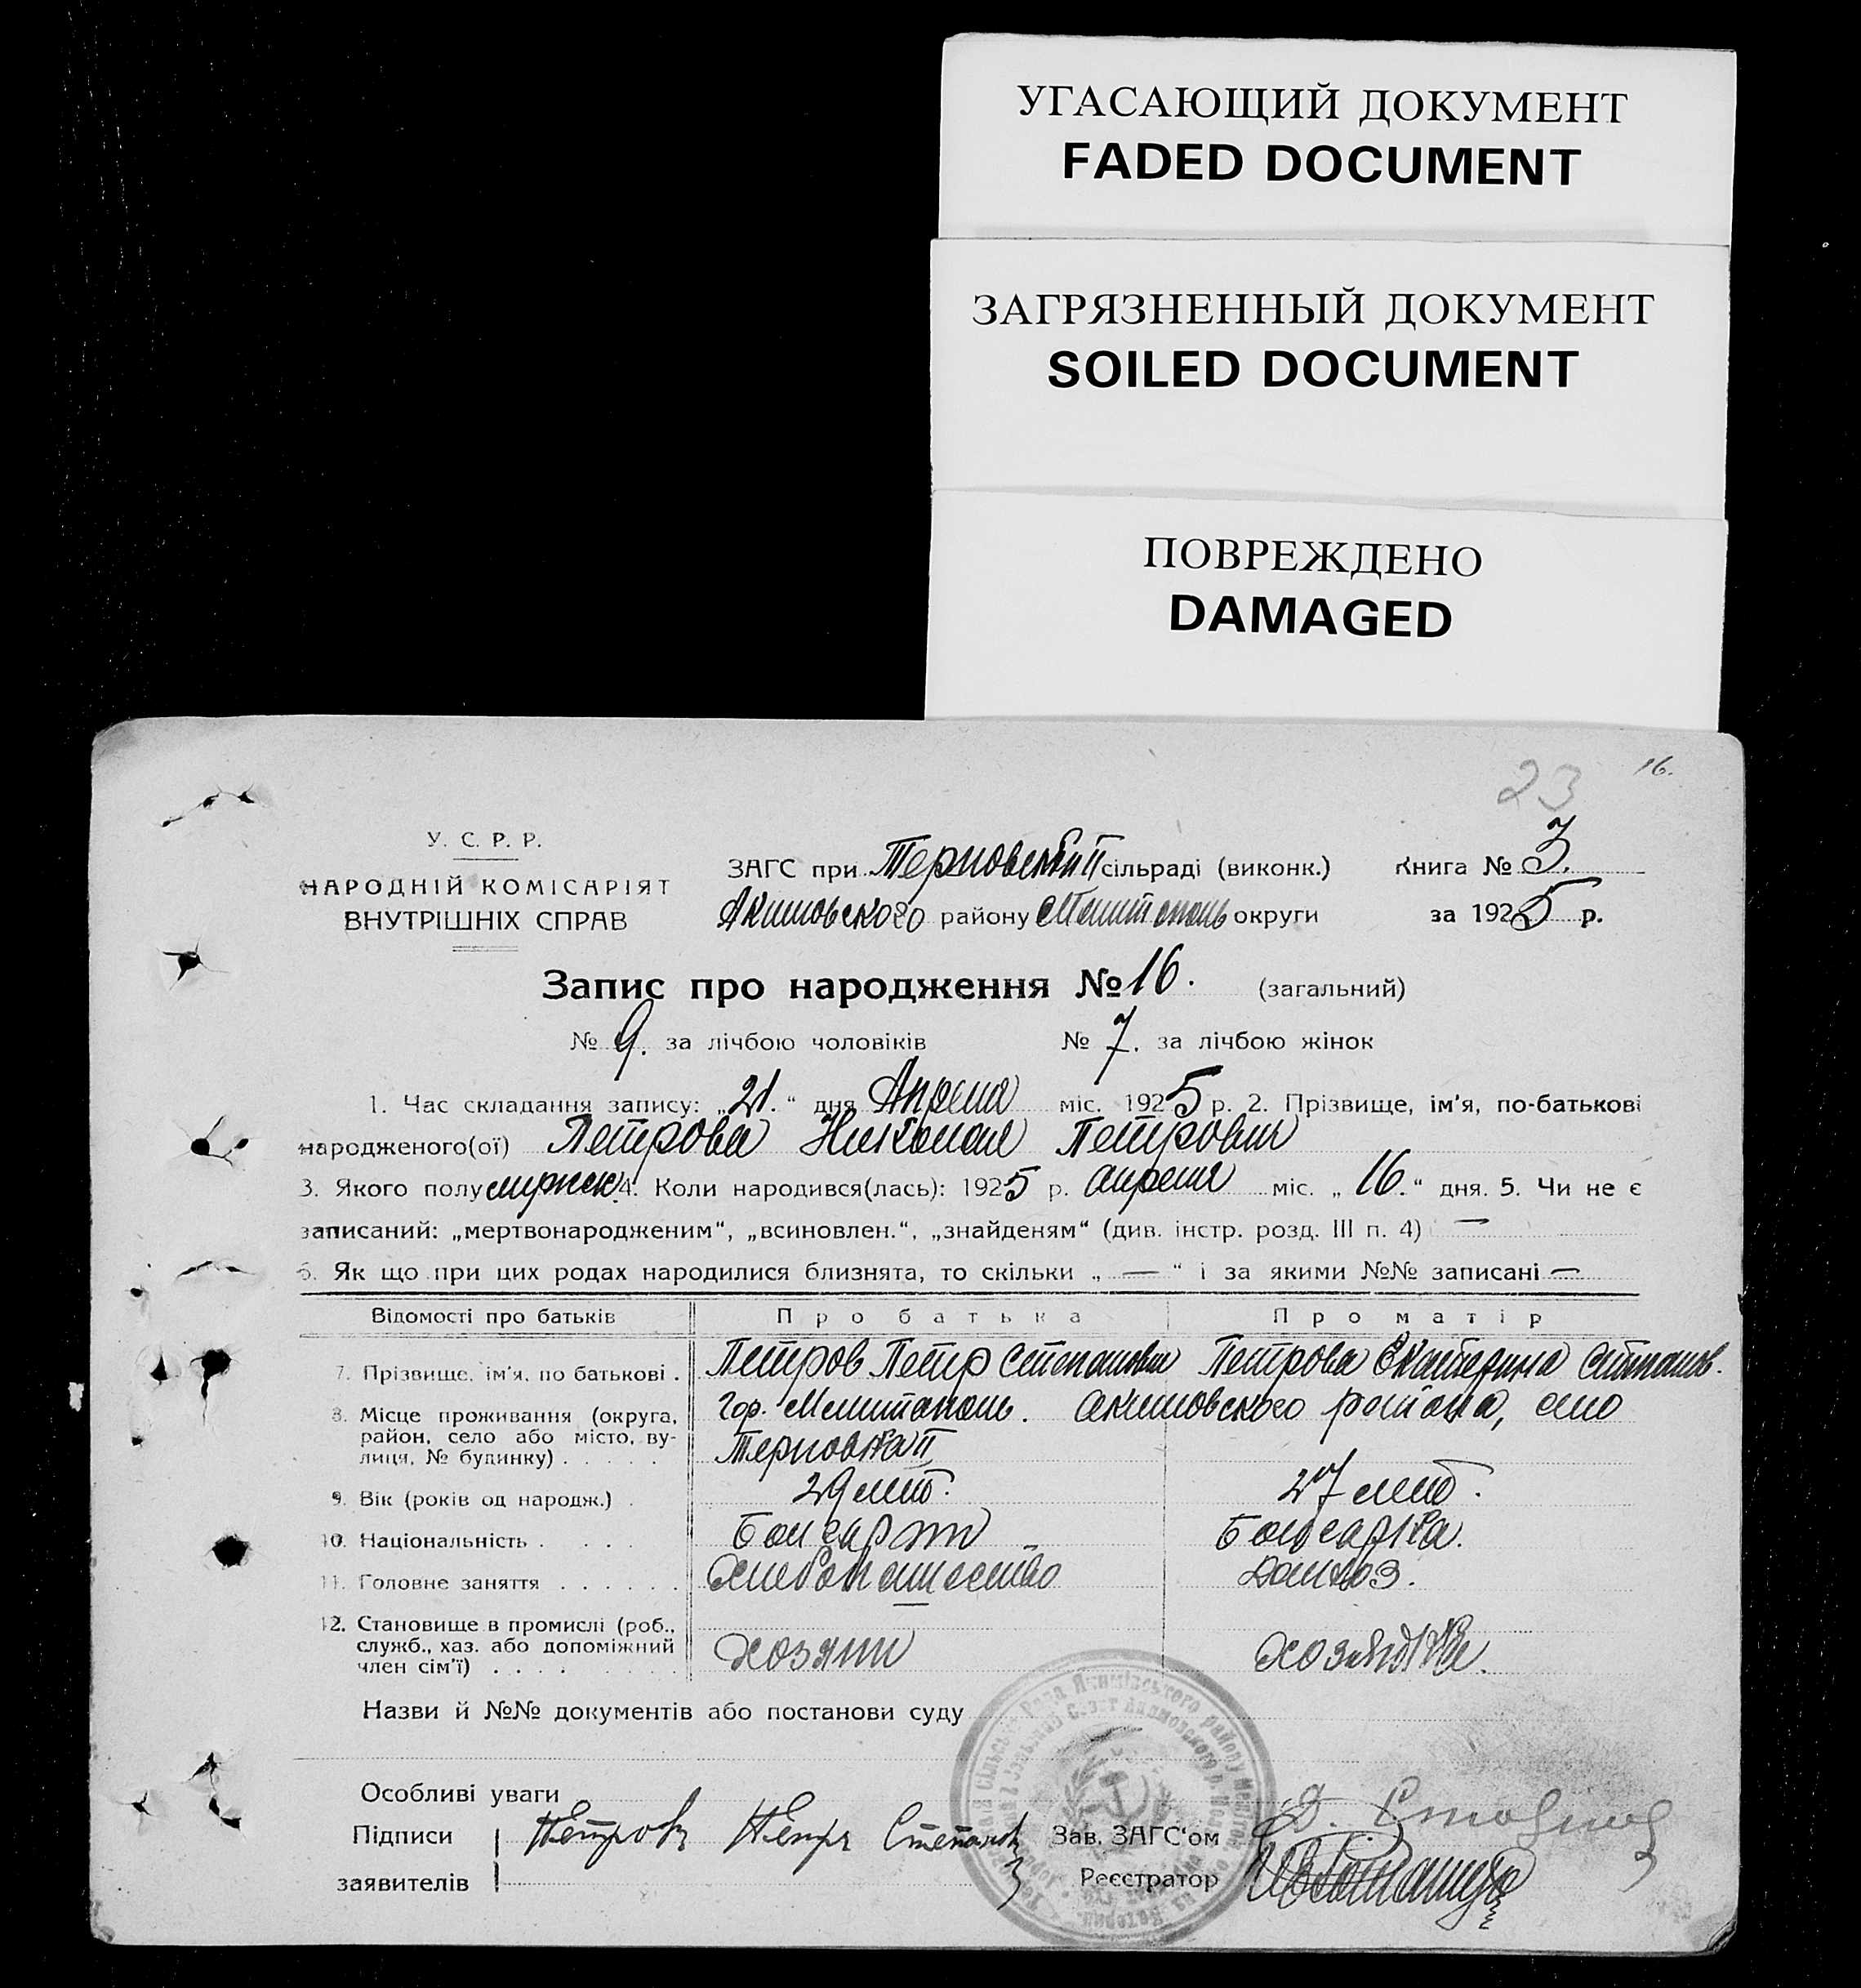 УГАСАЮЩИЙ ДОКУМЕНТ
FADED DOCUMENT
ЗАГРЯЗНЕННЫЙ ДОКУМЕНТ
SOILED DOCUMENT
ПОВРЕЖДЕНО
DAMAGED
23 16.
У. С. Р. Р.
НАРОДНІЙ КОМІСАРІЯТ
ВНУТРІШНІХ СПРАВ
ЗАГС при Терновской II сільраді (виконк.) Книга № 3.
Акимовского району Мелитополь округи за 1925 р.
Запис про народження № 16. (загальний)
№ 9. за лічбою чоловіків № 7. за лічбою жінок
1. Час складання запису: „21.“ дня Апреля міс. 1925 р. 2. Прізвище, ім'я, по-батькові
народженого(ої) Петрова Николая Петрович
3. Якого полу мужск. 4. Коли народився(лась): 1925 р. апреля міс. „16.“ дня. 5. Чи не є
записаний: „мертвонародженим“, „всиновлен.“, „знайденям“ (див. інстр. розд. III п. 4) —
6. Як що при цих родах народилися близнята, то скільки „ — “ і за якими №№ записані —
Відомості про батьків Про батька Про матір
7. Прізвище, ім'я, по батькові . Петров Петр Степанович Петрова Екатерина Степанов.
8. Місце проживання (округа, район, село або місто, вулиця, № будинку) . . . . . гор. Мелитополь. Акимовского района, село
Терновка II
9. Вік (років од народж.) . 29 лет. 27 лет.
10. Національність . . . . Болгарин Болгарка.
11. Головне заняття . . . . . . Хлебопашество Домхоз.
12. Становище в промислі (роб., служб., хаз. або допоміжний член сім'ї) . . . . хозяин хозяйка.
Назви й №№ документів або постанови суду
Особливі уваги
Підписи Петровъ Петръ Степанов Зав. ЗАГС'ом
заявителів Реєстратор